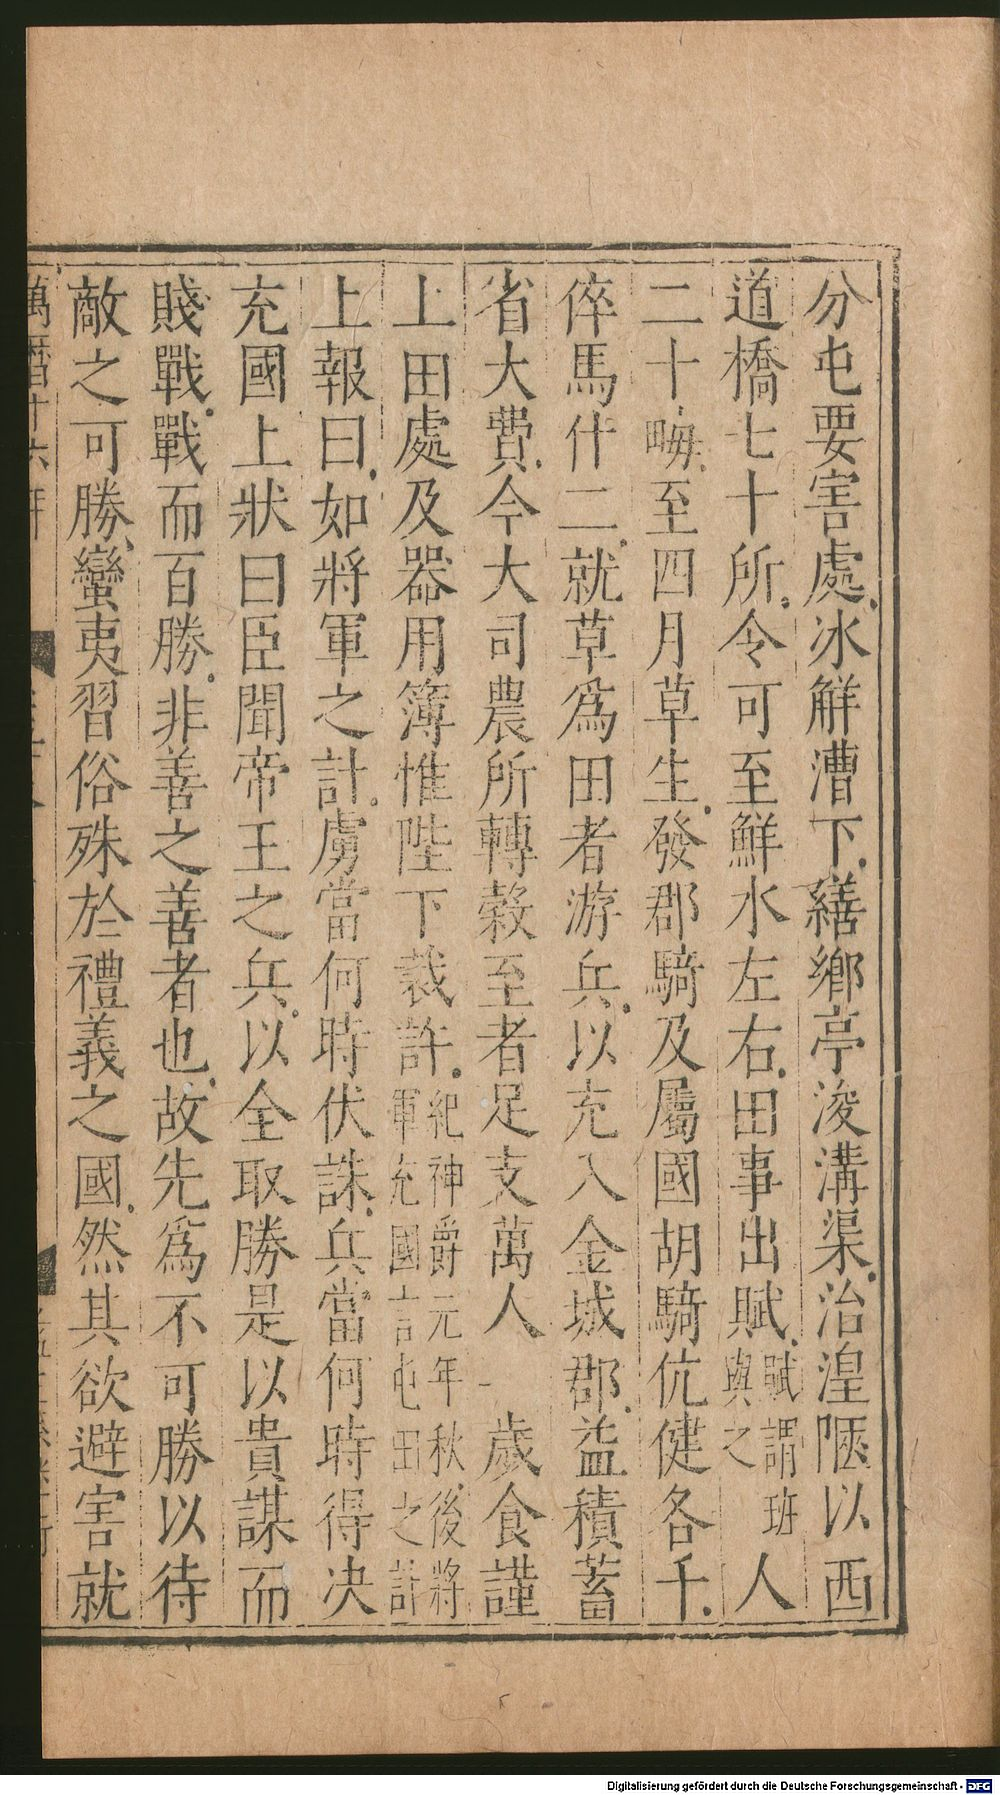 分屯要害處冰解漕下繕鄉亭浚溝渠治湟陿以西
道橋七十所令可至鮮水左右田事出賦賦謂班與之人
二十畮至四月草生發郡騎及屬國胡騎伉健各千
倅馬什二就草爲田者游兵以充入金城郡益積蓄
省大費今大司農所轉穀至者足支萬人一歲食謹
上田處及器用簿惟陛下裁許紀神爵元年秋後將軍充國言屯田之計
上報曰如將軍之計虜當何時伏誅兵當何時得決
充國上狀曰臣聞帝王之兵以全取勝是以貴謀而
賤戰戰而百勝非善之善者也故先爲不可勝以待
敵之可勝蠻夷習俗殊於禮義之國然其欲避害就
萬曆十六年
Digitalisierung gefördert durch die Deutsche Forschungsgemeinschaft - DFG